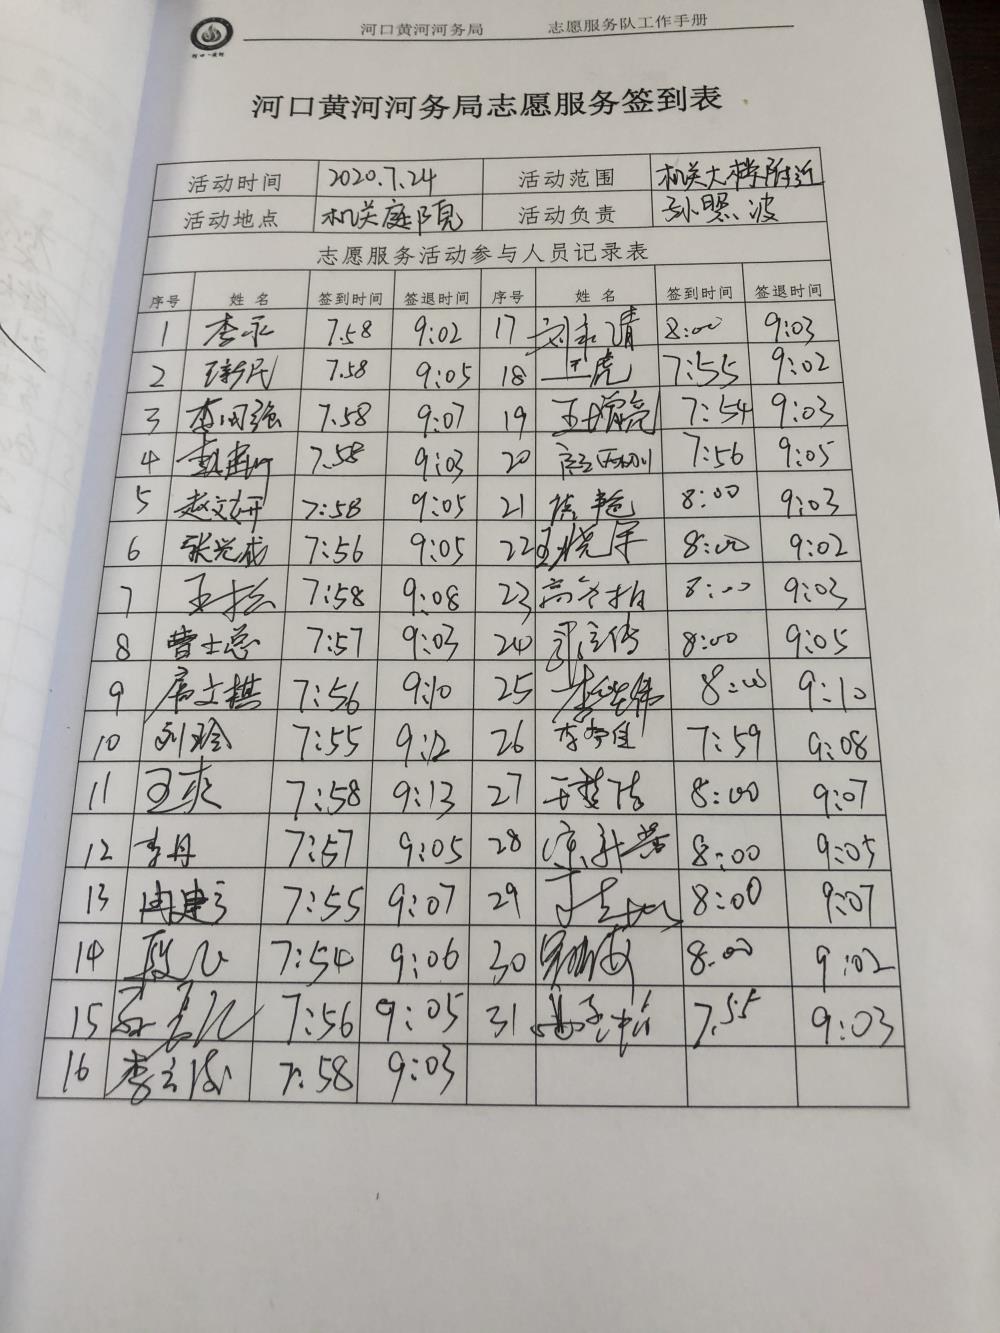 河口黄河河务局 志愿服务队工作手册
河口黄河河务局志愿服务签到表
活动时间 2020.7.24 活动范围 机关大楼附近
活动地点 机关庭院 活动负责 孙照波
志愿服务活动参与人员记录表
序号 姓名 签到时间 签退时间 序号 姓名 签到时间 签退时间
1 李永 7.58 9:02 17 8:00 9:03
2 7.58 9:05 18 王虎 7:55 9:02
3 李国强 7.58 9:07 19 王增亮 7:54 9:03
4 7.58 9:03 20 7:56 9:05
5 赵文妍 7:58 9:05 21 8:00 9:03
6 张兴成 7:56 9:05 22 王晓军 8:00 9:02
7 7:58 9:08 23 8:00 9:03
8 曹士总 7:57 9:03 24 8:00 9:05
9 扈文棋 7:56 9:10 25 8:00 9:10
10 刘玲 7:55 9:12 26 7:59 9:08
11 王爽 7:58 9:13 27 8:00 9:07
12 李丹 7:57 9:05 28 8:00 9:05
13 7:55 9:07 29 8:00 9:07
14 7:54 9:06 30 8:00 9:02
15 7:56 9:05 31 7.55 9:03
16 7:58 9:03